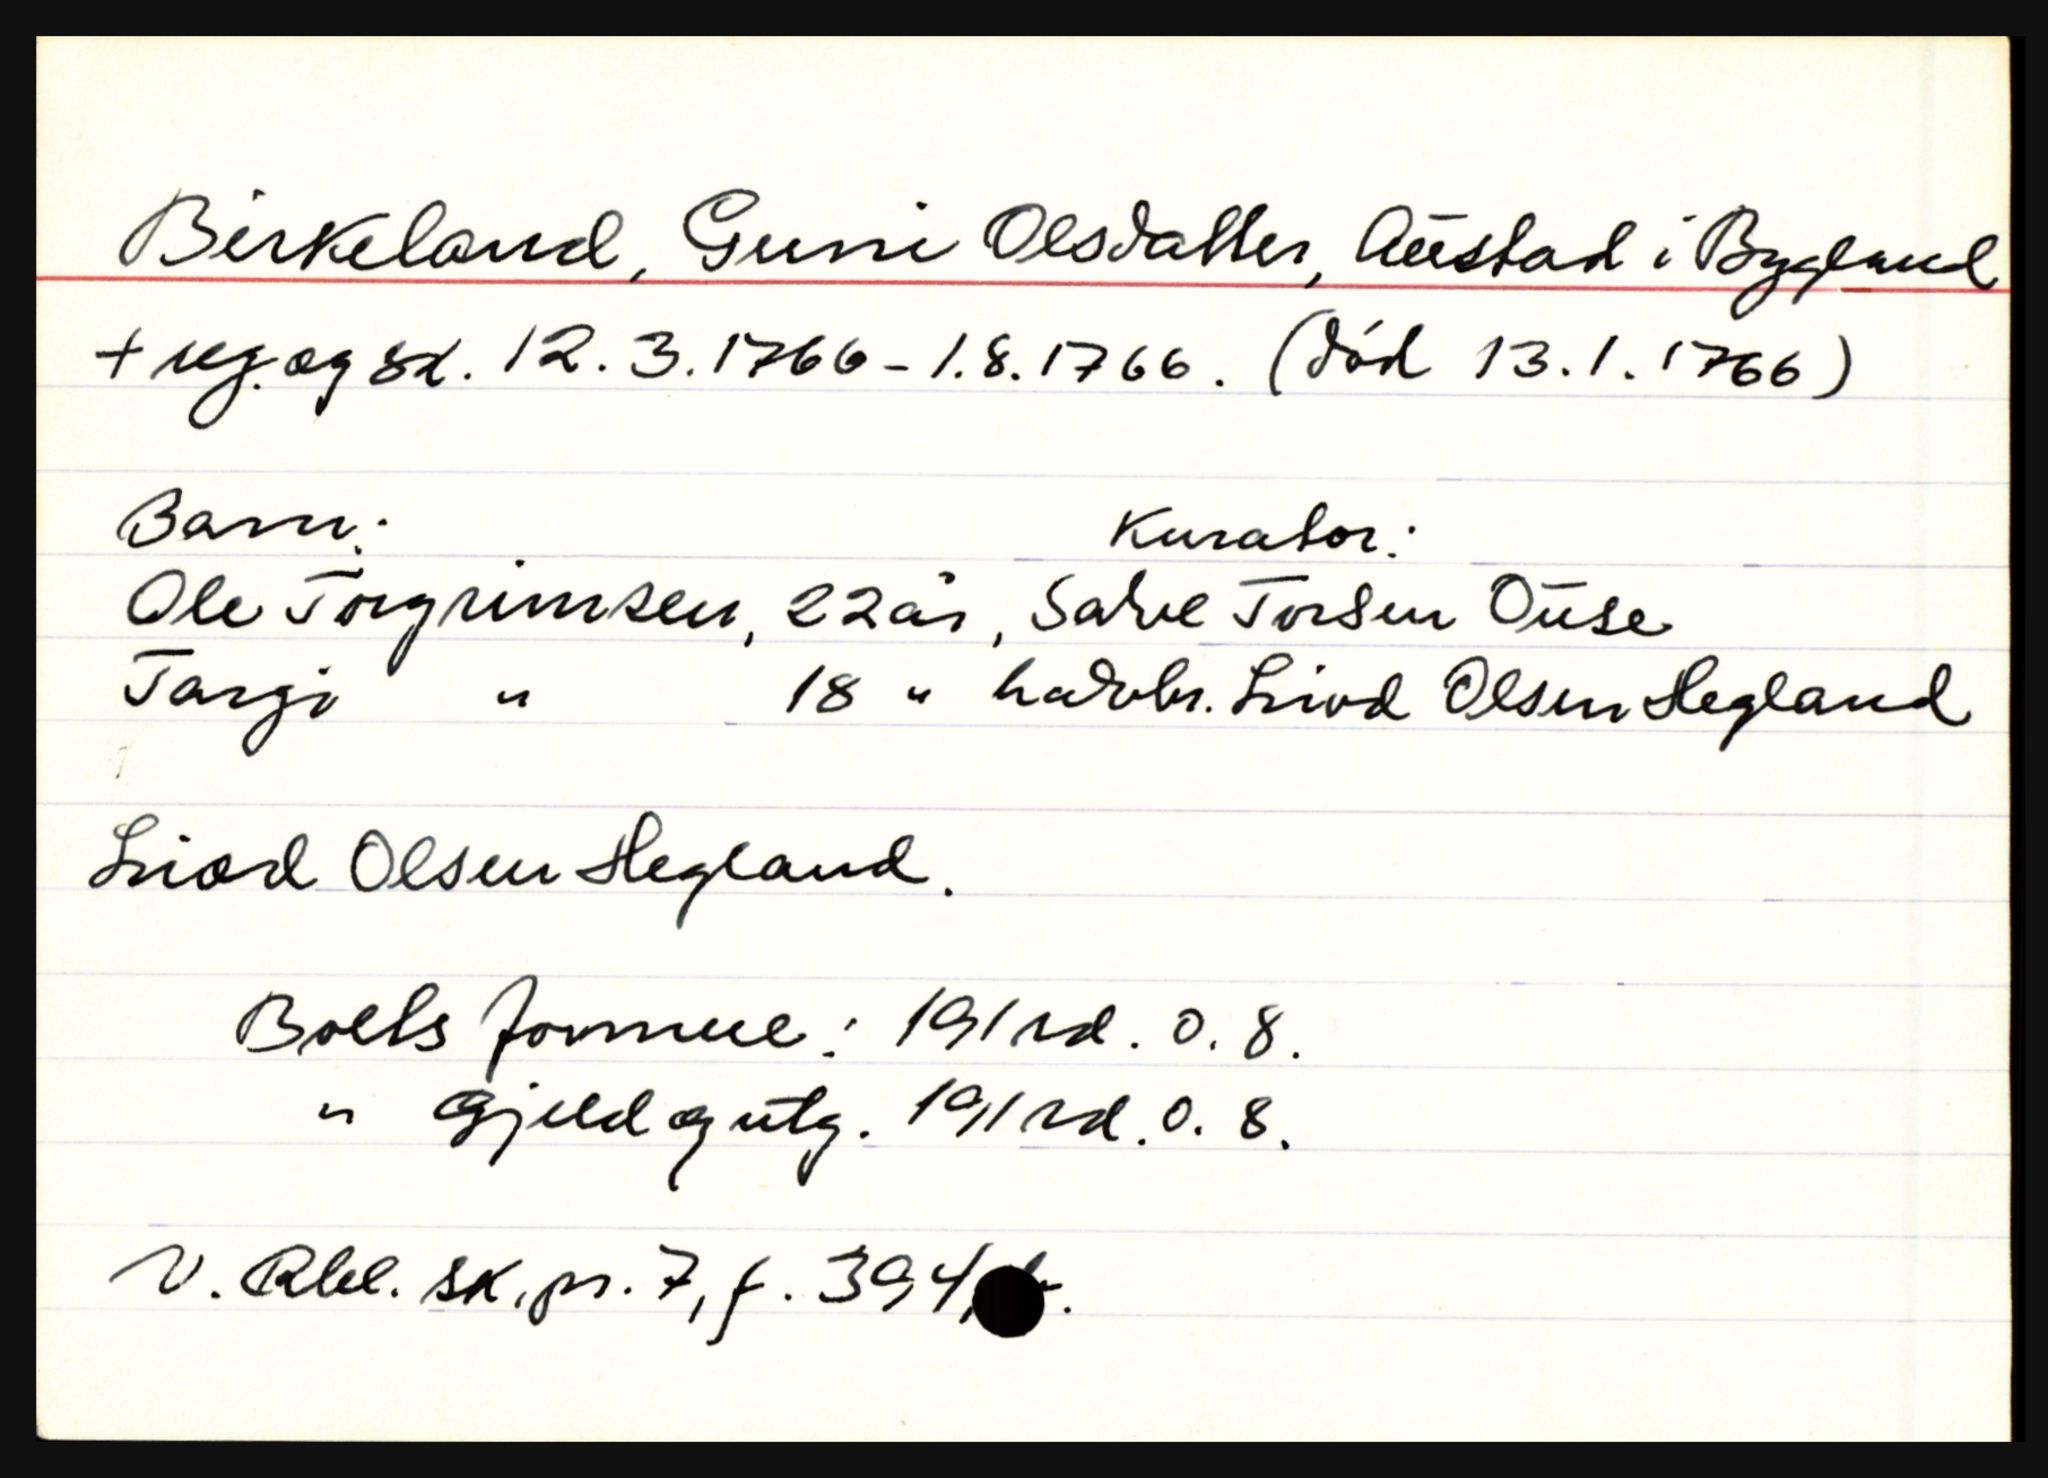 Birkeland, Gunni Olsdatter, Austad i Bygland
+ reg. og sk. 12.3.1766 - 1.8.1766. (død 13.1.1766)
Barn: Kurator:
Ole Torgrimsen, 22 år, Salve Torsen Ouse
Targi " 18 " halvbr. Liod Olsen Hegland
Liod Olsen Hegland.
Boets formue: 191 rd. 0. 8.
" gjeld og utg. 191 rd. 0. 8.
V. Rbl. sk.pr. 7, f. 394,